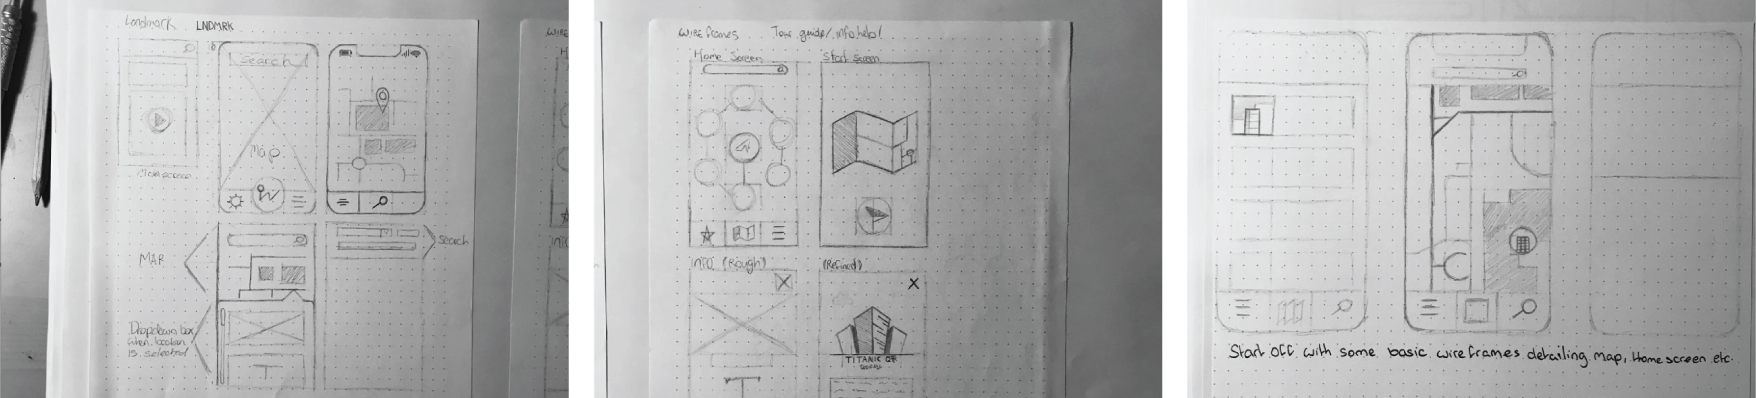 Landmark LNDMRK
Search
Map
Main screen
MAP
Search
Dropdown box
when location
is selected
Wire frames Tour guide/info help/
Home Screen Start Screen
INFO (Rough) (Refined)
TITANIC
Start off with some basic wireframes detailing map, Home screen etc.